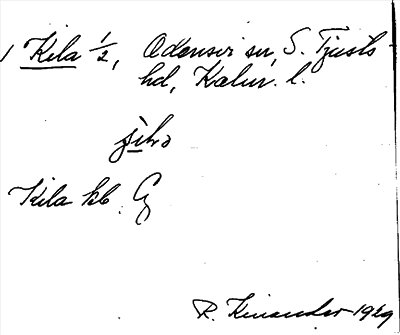 1 Kila 1/2, Odensvi sn, S. Tjusts
hd, Kalm. l.
Kila kb
R. Kinander 1929